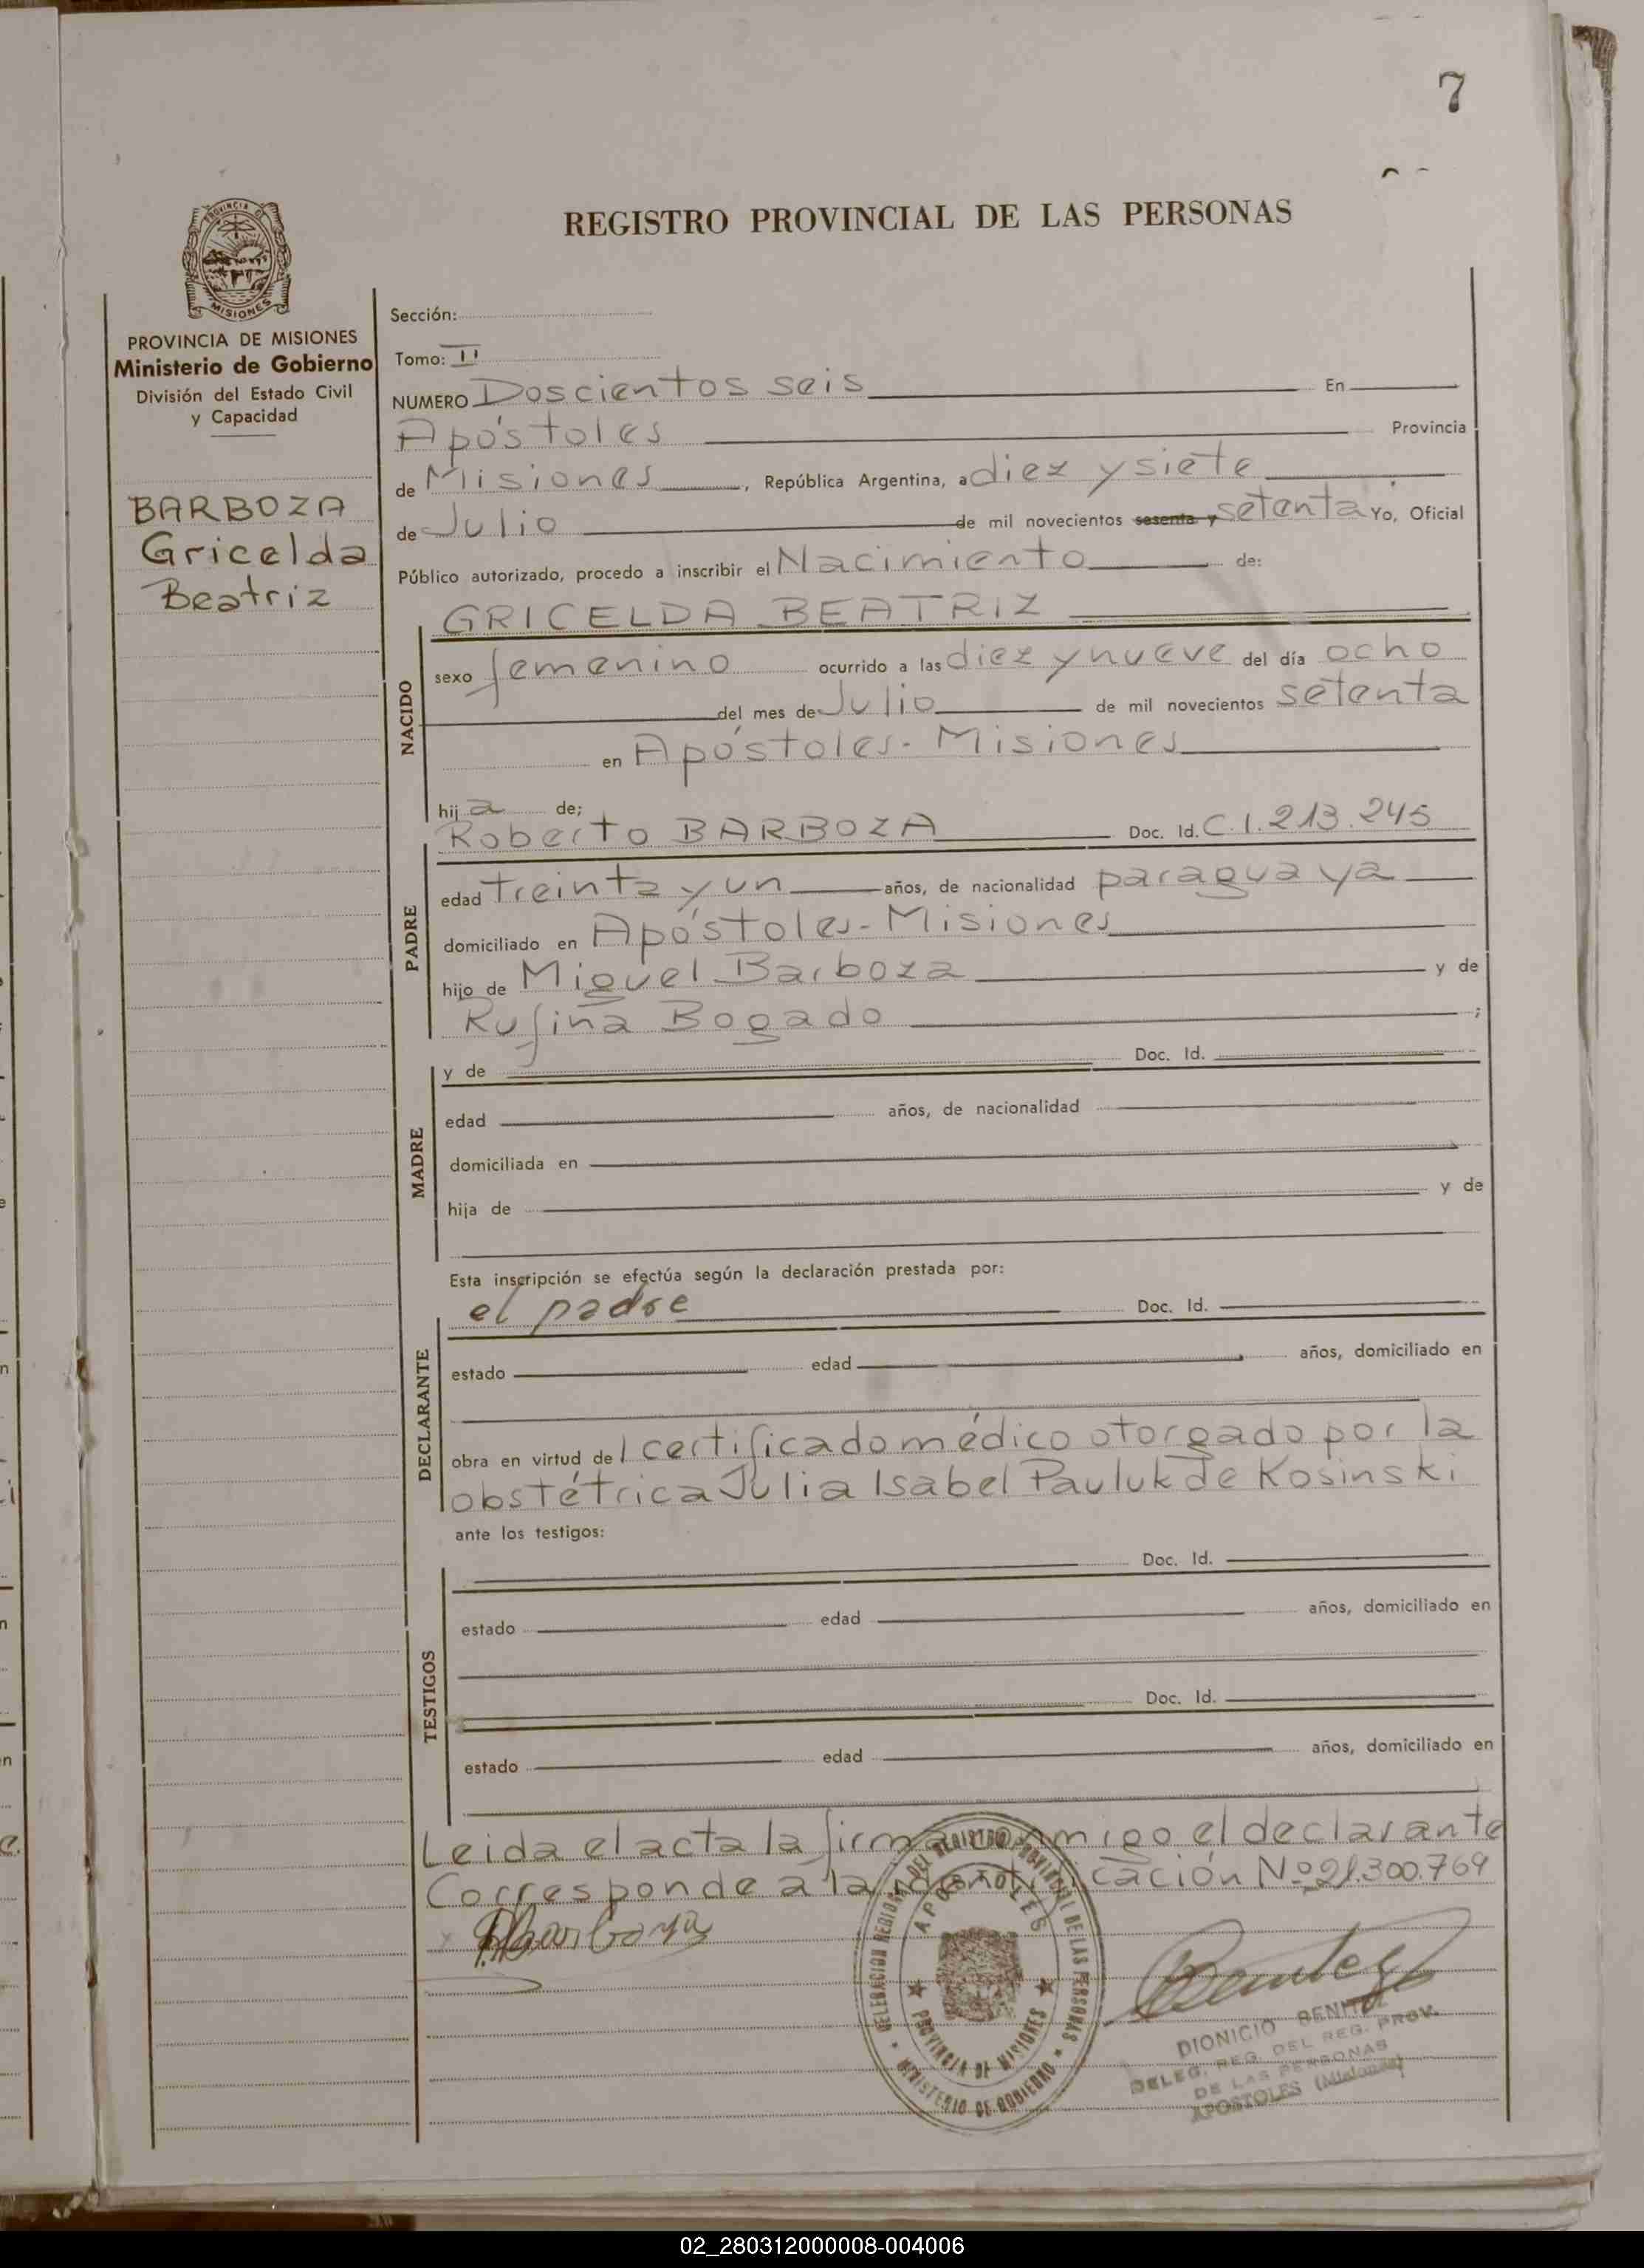 7
REGISTRO PROVINCIAL DE LAS PERSONAS
PROVINCIA DE
MISIONES
PROVINCIA DE MISIONES
Ministerio de Gobierno
División del Estado Civil
y Capacidad
BARBOZA
Gricelda
Beatriz
Sección:
Tomo: II
NUMERO Doscientos seis En
Apóstoles Provincia
de Misiones, República Argentina, a diez y siete
de Julio de mil novecientos sesenta y setenta Yo, Oficial
Público autorizado, procedo a inscribir el Nacimiento de:
GRICELDA BEATRIZ
NACIDO
sexo femenino ocurrido a las diez y nueve del día ocho
del mes de Julio de mil novecientos setenta
en Apóstoles - Misiones
hija de;
PADRE
Roberto BARBOZA Doc. Id. C.I. 213.245
edad treinta y un años, de nacionalidad paraguaya
domiciliado en Apóstoles - Misiones
hijo de Miguel Barboza y de
Rufina Bogado ;
MADRE
y de Doc. Id.
edad años, de nacionalidad
domiciliada en
hija de y de
Esta inscripción se efectúa según la declaración prestada por:
DECLARANTE
el padre Doc. Id.
estado edad años, domiciliado en
obra en virtud del certificado médico otorgado por la
obstétrica Julia Isabel Pauluk de Kosinski
ante los testigos:
TESTIGOS
Doc. Id.
estado edad años, domiciliado en
Doc. Id.
estado edad años, domiciliado en
Leida el acta la firma conmigo el declarante
Corresponde a la identificación Nº 21.300.769
RBarboza
Benitez
DELEGACION REGIONAL DEL REGISTRO PROVINCIAL DE LAS PERSONAS
MINISTERIO DE GOBIERNO
APOSTOLES
PROVINCIA DE MISIONES
DIONICIO BENITEZ
DELEG. REG. DEL REG. PROV.
DE LAS PERSONAS
APOSTOLES (Misiones)
02_280312000008-004006